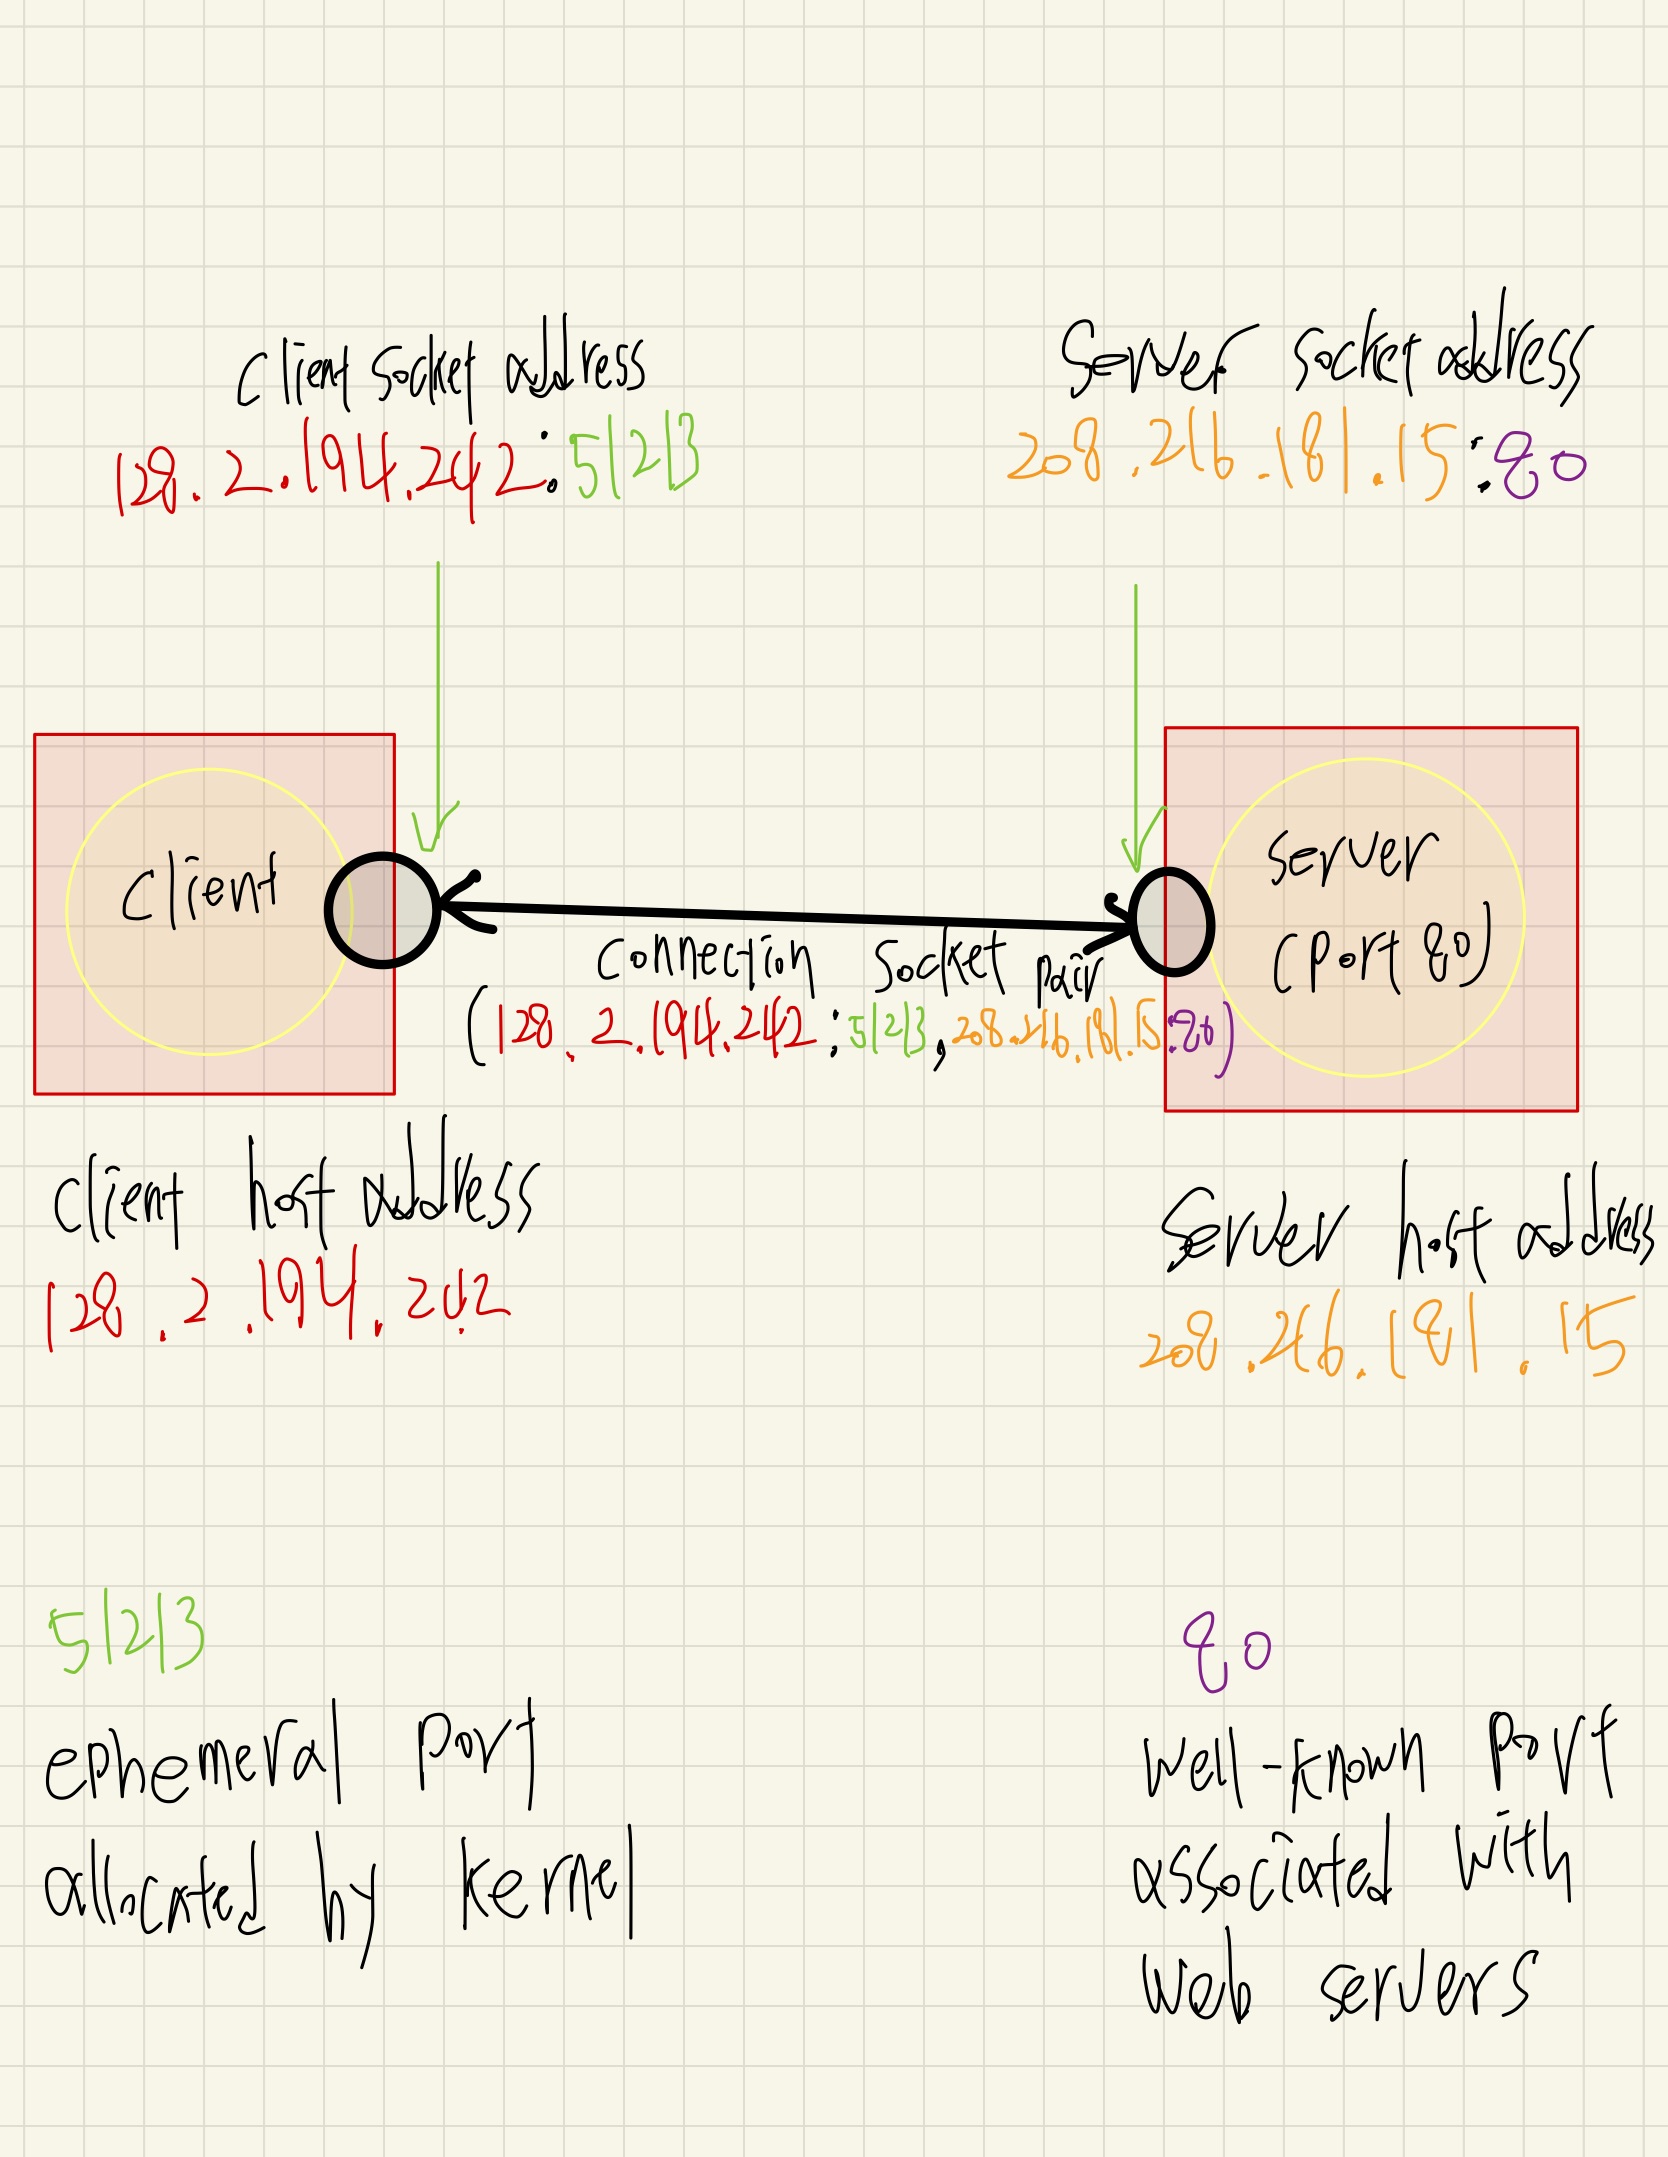 client socket address
128.2.194.242:51213
Server socket address
208.216.181.15:80
client
server
(port 80)
connection socket pair
(128.2.194.242:51213,208.216.181.15:80)
client host address
128.2.194.242
Server host address
208.216.181.15
51213
ephemeral port
allocated by kernel
80
well-known port
associated with
web servers